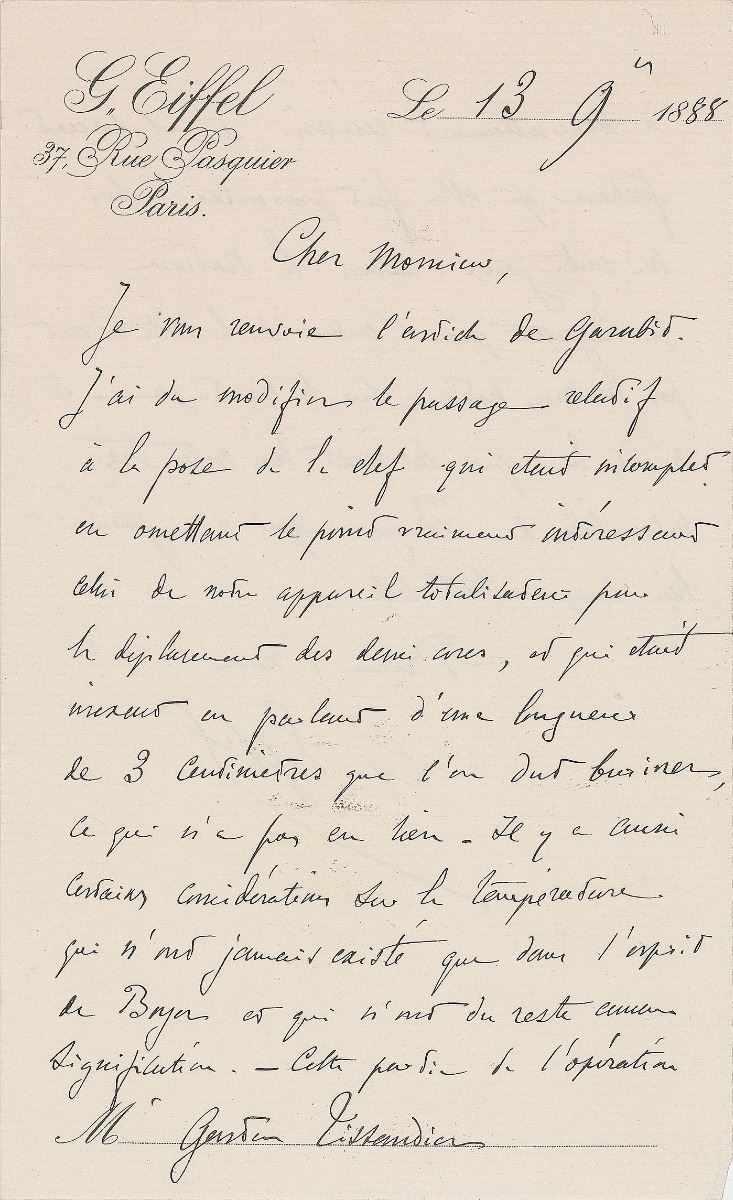 G. Eiffel
37, Rue Pasquier
Paris.
Le 13 9bre 1888
Cher Monsieur,
Je vous renvoie l'article de Garabit.
J'ai du modifier le passage relatif
à la pose de la clef qui etait incomplet
en omettant le point vraiment intéressant
celui de notre appareil totalisateur pour
le déplacement des demi arcs, et qui etait
inexact en parlant d'une longueur
de 3 Centimètres que l'on dut buriner,
ce qui n'a pas eu lieu - Il y a aussi
certaines considérations sur la température
qui n'ont jamais existé que dans l'esprit
de Boyer et qui n'ont du reste aucune
signification. - Cette partie de l'opération
Mr Gaston Tissandier